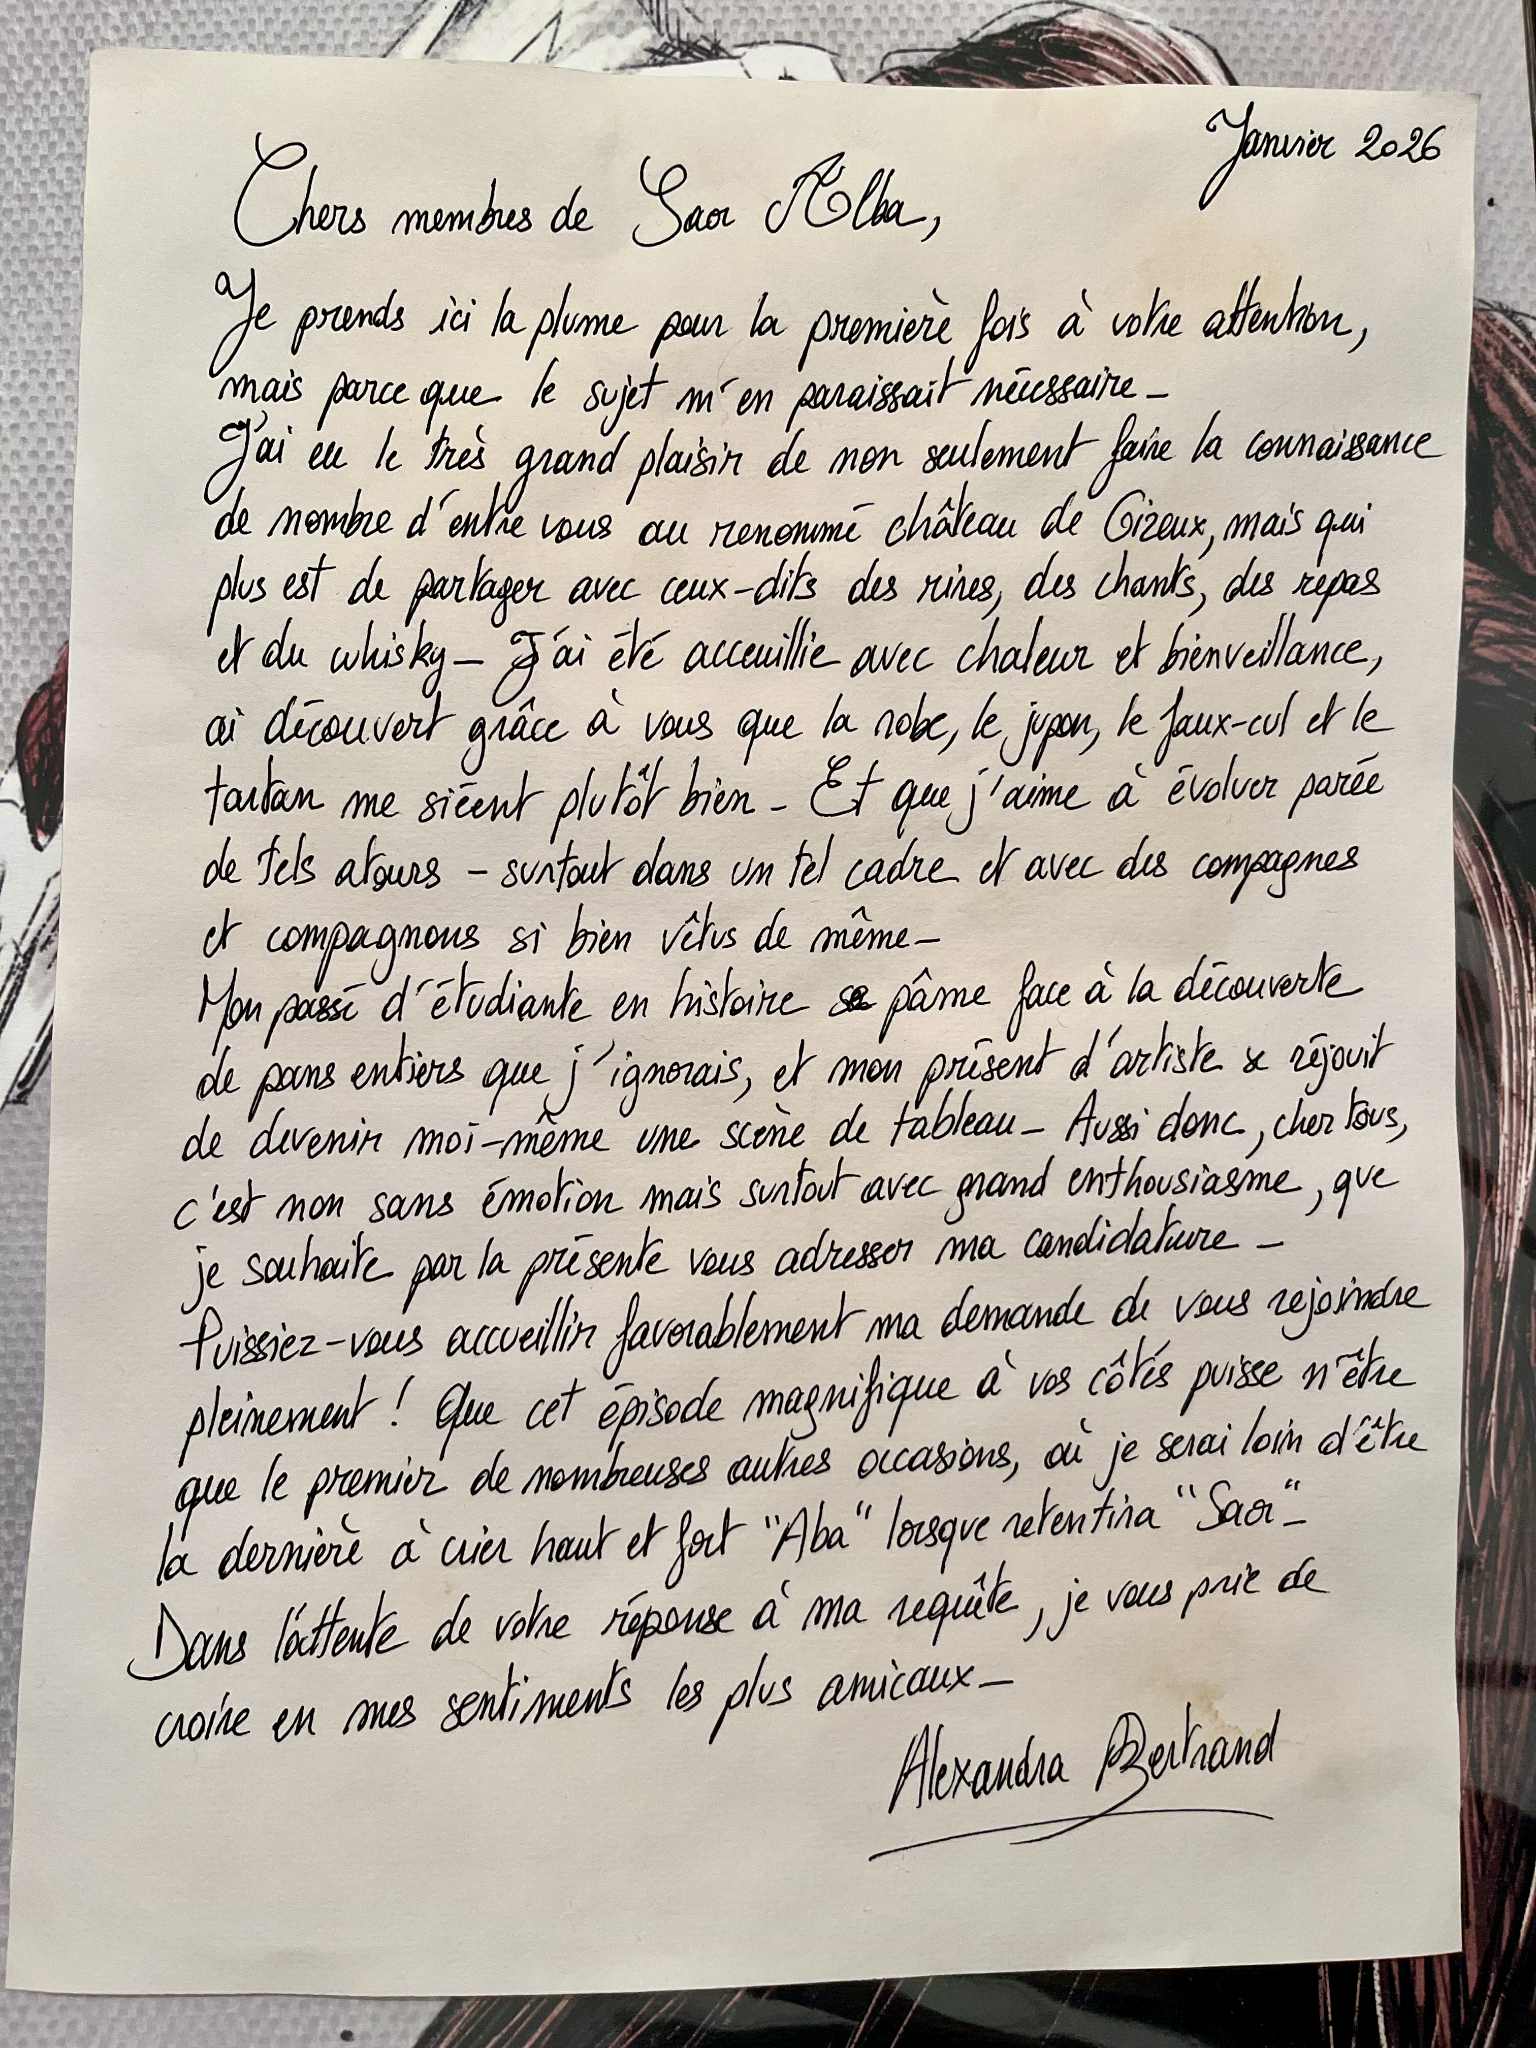 Janvier 2026
Chers membres de Saor Alba,
Je prends ici la plume pour la première fois à votre attention,
mais parce que le sujet m'en paraissait nécessaire_
J'ai eu le très grand plaisir de non seulement faire la connaissance
de nombre d'entre vous au renommé château de Gizeux, mais qui
plus est de partager avec ceux-dits des rires, des chants, des repas
et du whisky_ J'ai été acceuillie avec chaleur et bienveillance,
ai découvert grâce à vous que la robe, le jupon, le faux-cul et le
tartan me siéent plutôt bien_ Et que j'aime à évoluer parée
de tels atours - surtout dans un tel cadre et avec des compagnes
et compagnons si bien vêtus de même_
Mon passé d'étudiante en histoire se pâme face à la découverte
de pans entiers que j'ignorais, et mon présent d'artiste se réjouit
de devenir moi-même une scène de tableau_ Aussi donc, cher tous,
c'est non sans émotion mais surtout avec grand enthousiasme, que
je souhaite par la présente vous adresser ma candidature_
Puissiez-vous accueillir favorablement ma demande de vous rejoindre
pleinement ! Que cet épisode magnifique à vos côtés puisse n'être
que le premier de nombreuses autres occasions, où je serai loin d'être
la dernière à crier haut et fort "Aba" lorsque retentira "Saor"_
Dans l'attente de votre réponse à ma requête, je vous prie de
croire en mes sentiments les plus amicaux_
Alexandra Bertrand